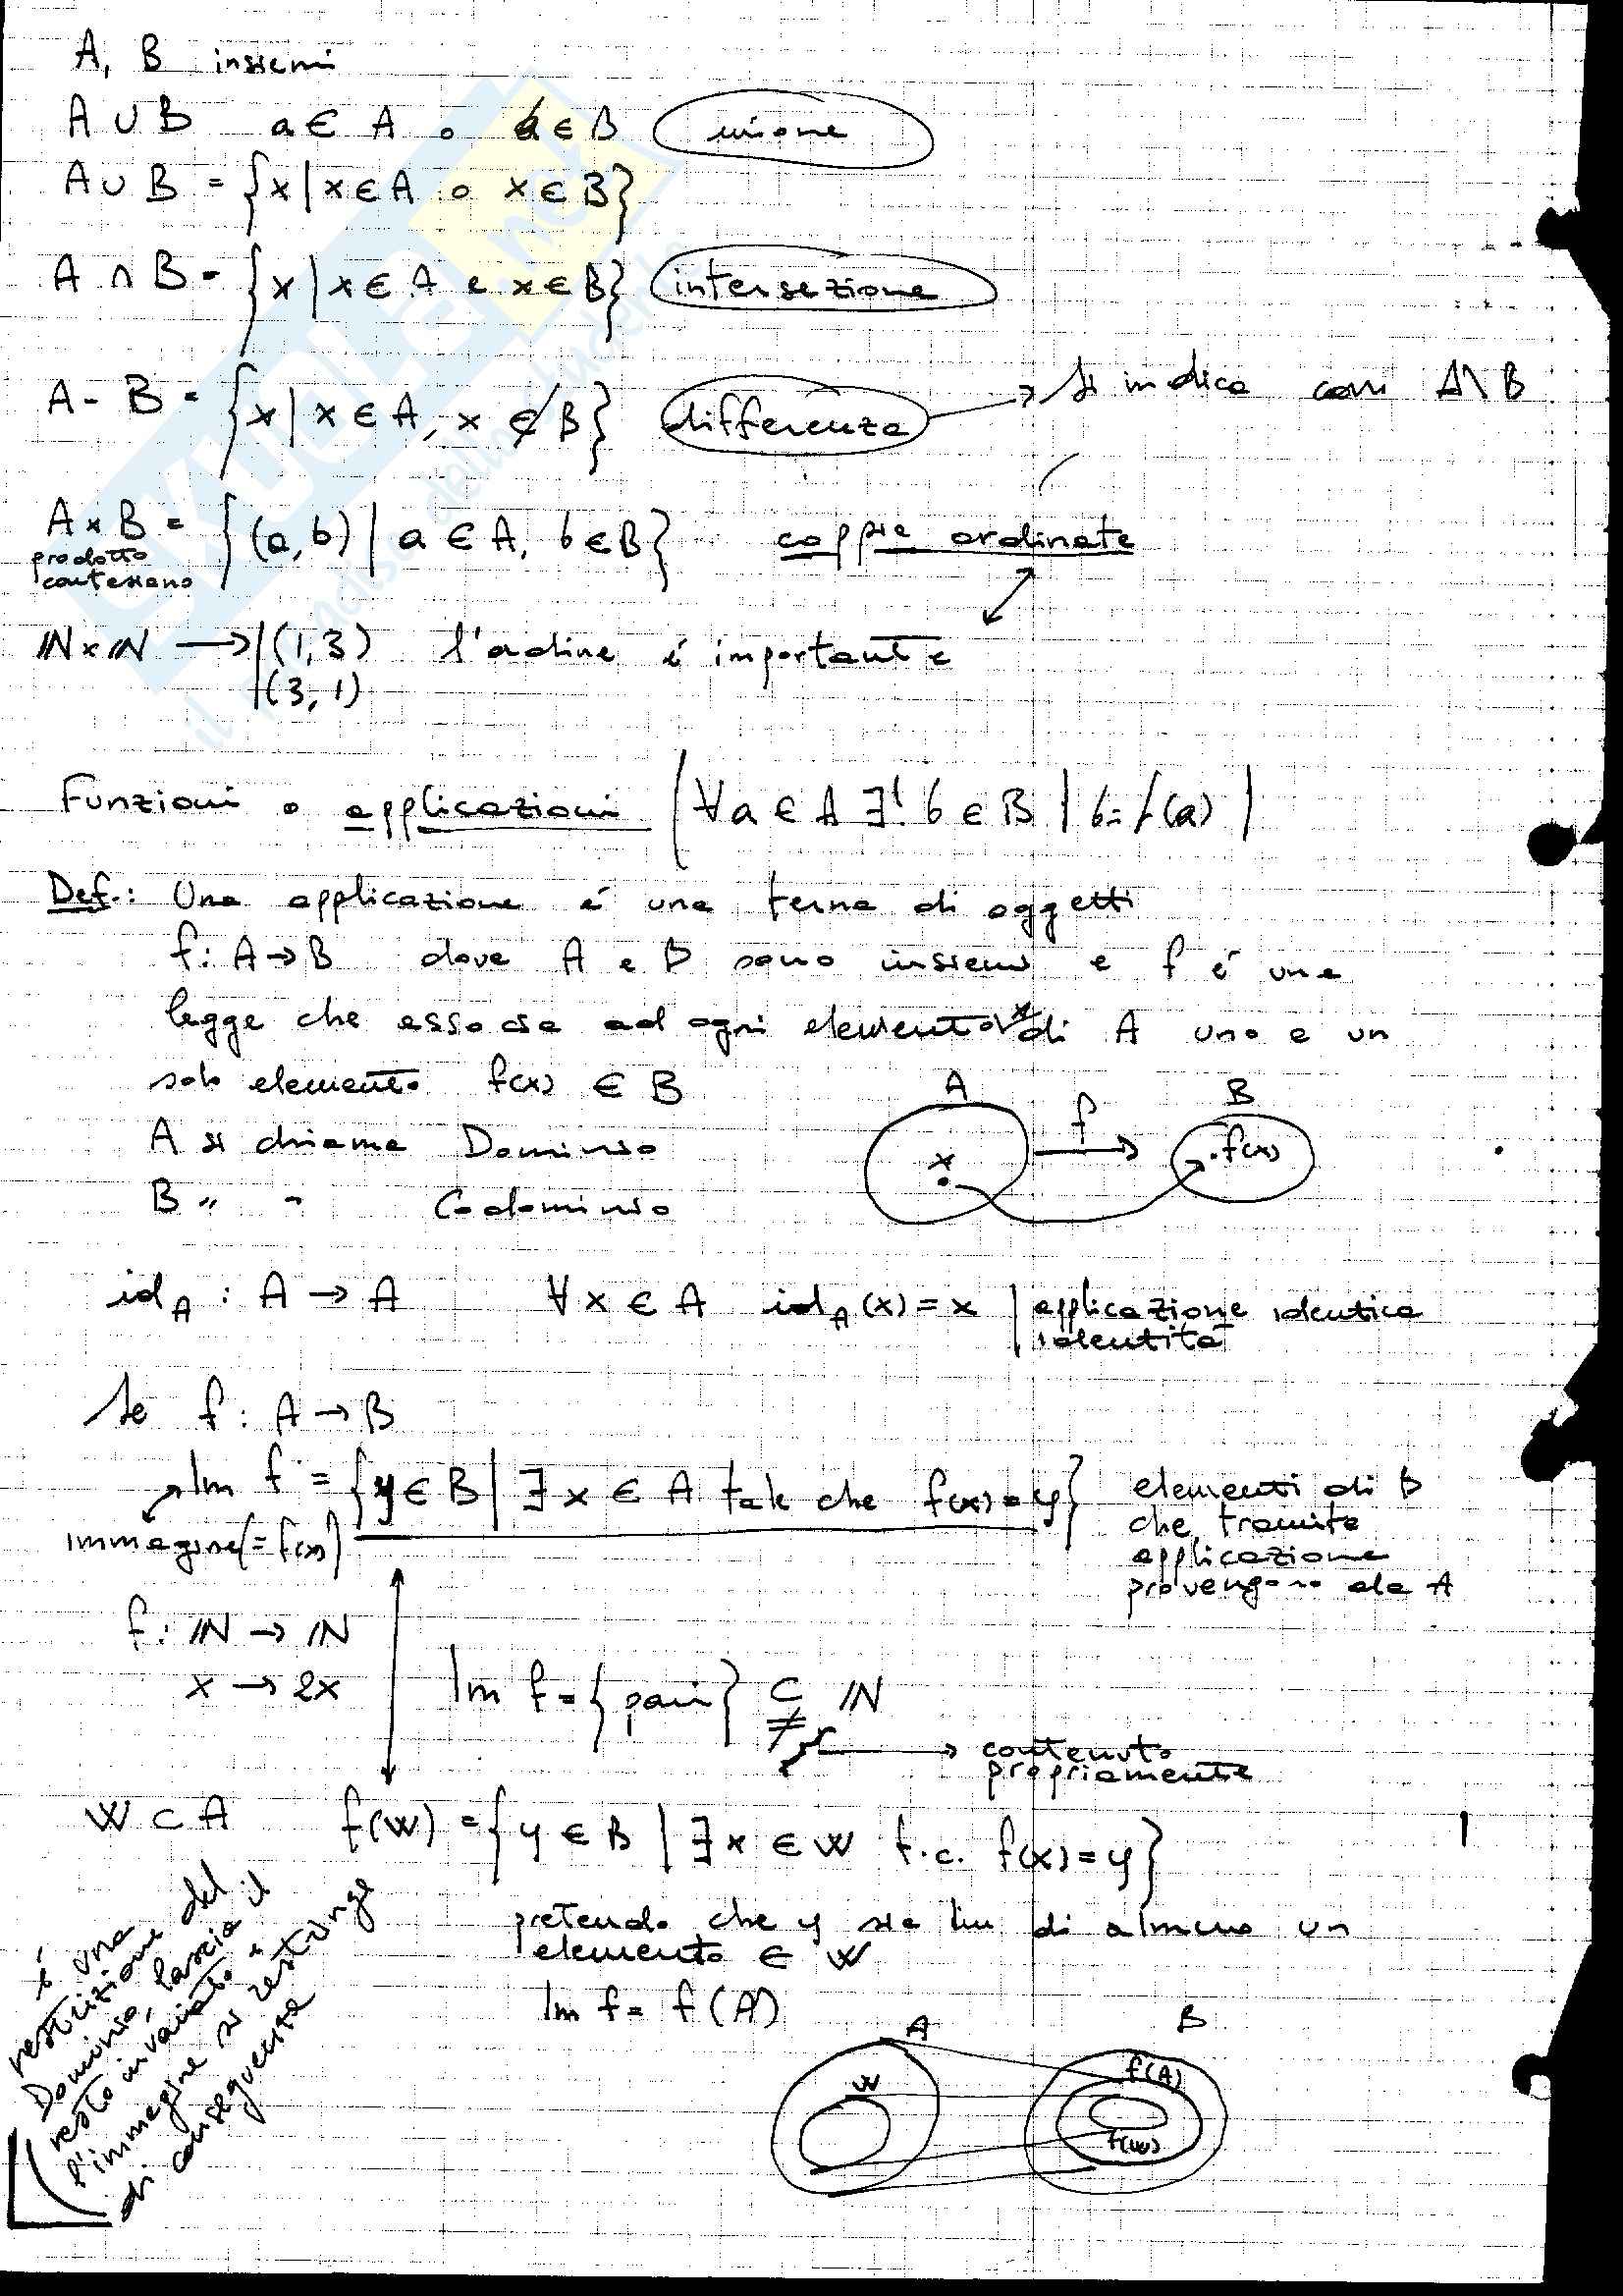 A, B insiemi
A ∪ B a ∈ A o a ∈ B unione
A ∪ B = {x | x ∈ A o x ∈ B}
A ∩ B = {x | x ∈ A e x ∈ B} intersezione
A - B = {x | x ∈ A, x ∉ B} differenza → si indica con A \ B
A × B = {(a, b) | a ∈ A, b ∈ B} coppie ordinate
prodotto
cartesiano
ℕ × ℕ → (1, 3) l'ordine é importante
(3, 1)
Funzioni o applicazioni (∀ a ∈ A ∃! b ∈ B | b = f(a))
Def.: Una applicazione é una terna di oggetti
f: A → B dove A e B sono insiemi e f é una
legge che associa ad ogni elemento x di A uno e un
solo elemento f(x) ∈ B
A si chiama Dominio
B " " Codominio
A f B
x f(x)
id_A : A → A ∀ x ∈ A id_A(x) = x | applicazione identica
identità
Se f: A → B
Im f = {y ∈ B | ∃ x ∈ A tale che f(x) = y}
immagine (= f(x))
elementi di B
che tramite
applicazione
provengono da A
f: ℕ → ℕ
x → 2x
Im f = {pari} ⊊ ℕ
→ contenuto
propriamente
W ⊂ A f(W) = {y ∈ B | ∃ x ∈ W t.c. f(x) = y}
pretendo che y sia Im di almeno un
elemento ∈ W
Im f = f(A)
é una
restrizione del
Dominio, lascia il
resto invariato e
l'immagine si restringe
di conseguenza
A B
W f(A)
f(W)